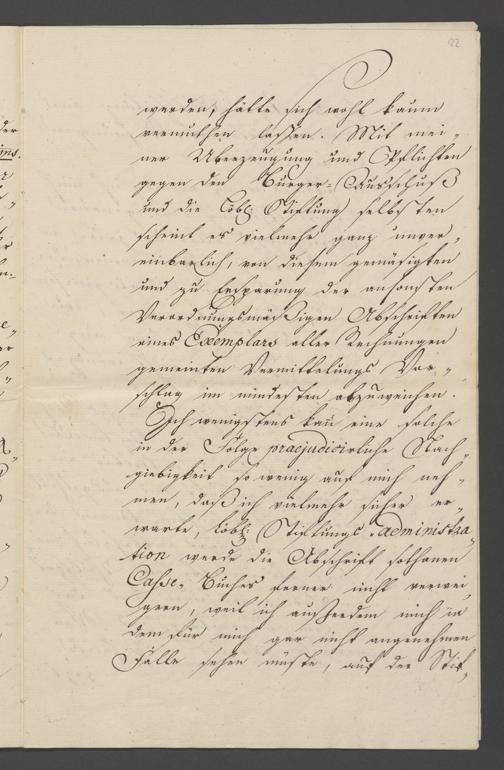 22
werden, hätte sich wohl kaum
vermuthen lassen. Mit mei„
ner Überzeugung und Pflichten
gegen den Bürger-Ausschuß
und die Löbl: Stiftung selbsten
scheint es vielmehr ganz unver„
einbarlich, von diesem gemäsigten
und zu Ersparung der ansonsten
Verordnungsmäßigen Abschriften
eines Exemplars aller Rechnungen
gemeinten Vermittelungs Vor„
schlag im mindesten abzuweichen.
Ich wenigstens kan eine solche
in der Folge praejudicirliche Nach„
giebigkeit so wenig auf mich neh„
men, daß ich vielmehr sicher er„
warte, löbl: Stiftungs-Administra„
tion werde die Abschrift sothanen
Casse-Buches ferner nicht verwei„
gern, weil ich außerdem mich in
dem für mich gar nicht angenehmen
Falle sehen müste, auf der Stif„